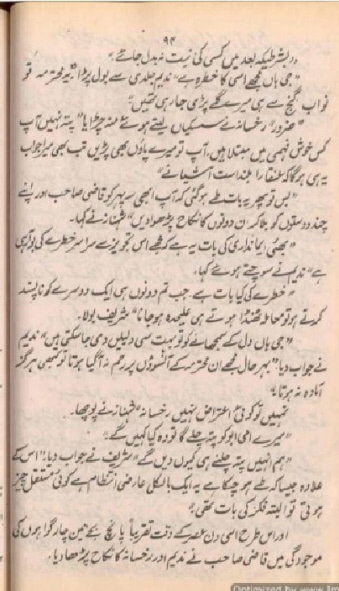 ۹۴
"بشرطیکہ بعد میں کسی کی نیت نہ بدل جائے۔"
"جی ہاں مجھے اسی کا خطرہ ہے" ندیم جلدی سے بول پڑا "یہ محترمہ تو
نواب گنج سے ہی میرے گلے پڑی جا رہی تھیں"
"ضرور" رخسانہ نے سسکیاں لیتے ہوئے منہ چڑایا "پتہ نہیں آپ
کس خوش فہمی میں مبتلا ہیں۔ آپ تو میرے پاؤں بھی پڑیں تب بھی میرا جواب
یہ ہی ہوگا کہ
"بس تو پھر یہ بات طے ہو گئی کہ آپ ابھی سہ پہر کو قاضی صاحب اور اپنے
چند دوستوں کو بلا کر ان دونوں کا نکاح پڑھوا دیں" شہناز نے کہا۔
"بھئی ایمانداری کی بات یہ ہے کہ مجھے اس تجویز سے سراسر خطرے کی بو آ رہی
ہے" ندیم نے سوچتے ہوئے کہا۔
"خطرے کی کیا بات ہے۔ جب تم دونوں ہی ایک دوسرے کو ناپسند
کرتے ہو تو معاملہ ٹھنڈا ہوتے ہی علیحدہ ہو جانا" شریف بولا۔
"جی ہاں دل کے سمجھانے کو تو بہت سی دلیلیں دی جا سکتی ہیں" ندیم
نے جواب دیا "بہرحال مجھے ان محترمہ کے آنسوؤں پر رحم نہ آ گیا ہوتا تو کبھی ہرگز
آمادہ نہ ہوتا۔"
تمہیں تو کوئی اعتراض نہیں رخسانہ" شہناز نے پوچھا۔
"میرے امی ابو کو پتہ چلے گا تو وہ کیا کہیں گے"
"ہم انہیں پتہ چلنے ہی کیوں دیں گے" شریف نے جواب دیا "اس کے
علاوہ جیسا کہ طے ہو چکا ہے یہ ایک بالکل عارضی انتظام ہے کوئی مستقل چیز
ہوتی تو البتہ فکر کی بات تھی"
اور اس طرح اسی دن عصر کے وقت تقریباً پانچ بجے تین چار گواہوں کی
موجودگی میں قاضی صاحب نے ندیم اور رخسانہ کا نکاح پڑھا دیا۔
Optimized by www.